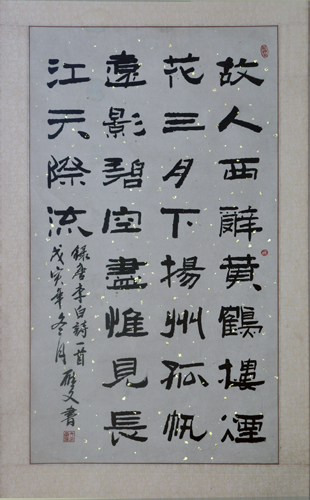 故人西辭黃鶴樓煙
花三月下揚州孤帆
遠影碧空盡惟見長
江天際流
錄唐李白詩一首
戊寅年冬月 書